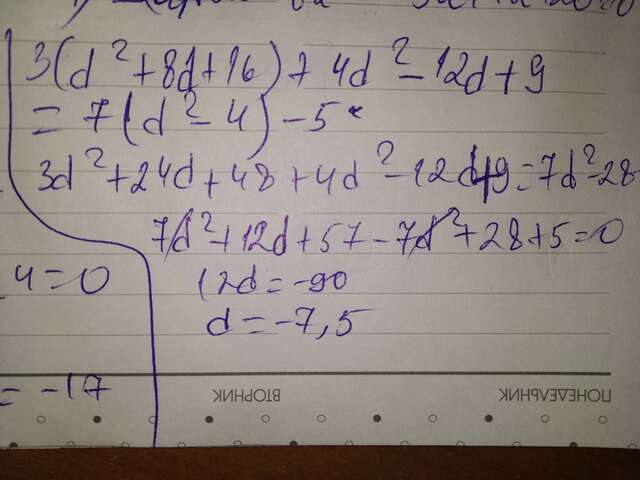 3(d²+8d+16)+4d²-12d+9
=7(d²-4)-5
3d²+24d+48+4d²-12d+9=7d²-28
7d²+12d+57-7d²+28+5=0
4=0
12d=-90
d=-7,5
=-17
ВТОРНИК
ПОНЕДЕЛЬНИК